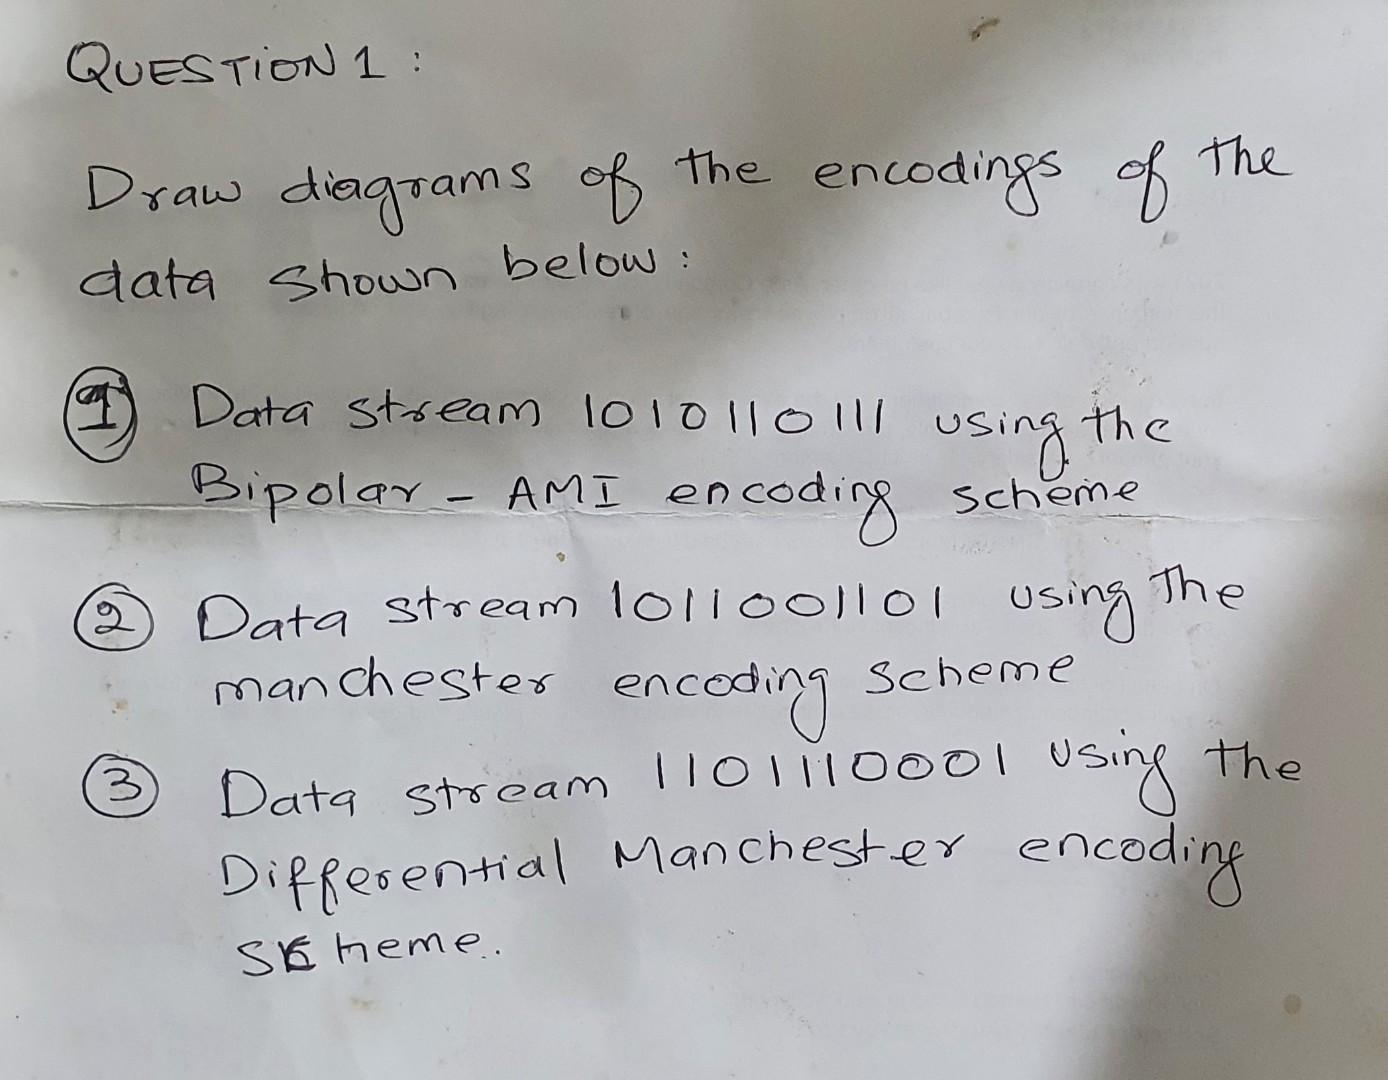 QUESTION 1 :
Draw diagrams of the encodings of the
data shown below :
1 Data stream 1010110111 using the
Bipolar - AMI encoding scheme
2 Data stream 1011001101 using The
manchester encoding scheme
3 Data stream 1101110001 using the
Differential Manchester encoding
scheme.